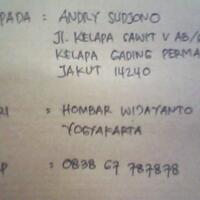 PADA : ANDRY SUDJONO
Jl. KELAPA SAWIT V AB/
KELAPA GADING PERMA
JAKUT 14240
RI : HOMBAR WIJAYANTO
YOGYAKARTA
P : 0838 67 787878